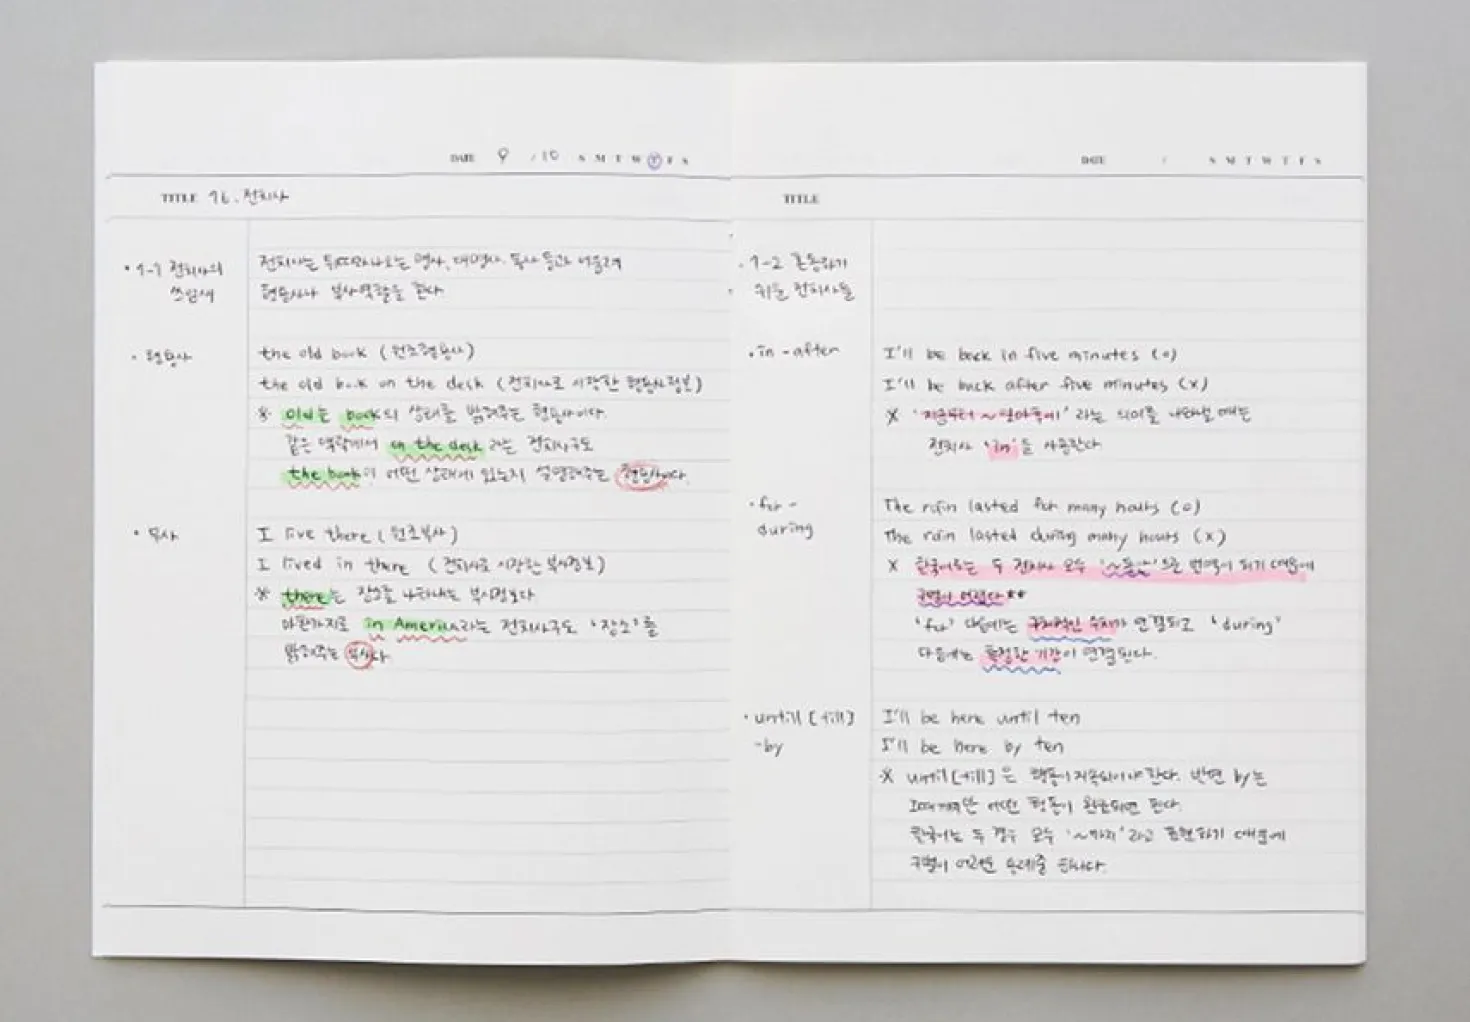 DATE 9 / 10 S M T W T F S
TITLE 96. 전치사
· 1-1 전치사의
쓰임새
전치사는 뒤따라나오는 명사, 대명사, 동사 등과 어울려
형용사나 부사역할을 한다.
· 형용사
the old book (원조형용사)
the old book on the desk (전치사로 시작한 형용사정보)
※ old는 book의 상태를 밝혀주는 형용사이다.
같은 맥락에서 on the desk 라는 전치사구도
the book이 어떤 상태에 있는지 설명해주는 형용사다.
· 부사
I live there (원조부사)
I lived in there (전치사로 시작한 부사정보)
※ there는 장소를 나타내는 부사정보다
마찬가지로 in America라는 전치사구도 '장소'를
밝혀주는 부사다.
DATE / S M T W T F S
TITLE
· 1-2 혼동하기
쉬운 전치사들
· in - after
I'll be back in five minutes (o)
I'll be back after five minutes (x)
※ '지금부터 ~ 후에' 라는 의미를 나타낼 때는
전치사 'in'을 사용한다
· for -
during
The rain lasted for many hours (o)
The rain lasted during many hours (x)
※ 한국어로는 두 전치사 모두 '~동안'으로 번역이 되기 때문에
구별이 어렵다**
'for' 다음에는 구체적인 숫자가 연결되고 'during'
다음에는 특정한 기간이 연결된다.
· until [till]
- by
I'll be here until ten
I'll be here by ten
※ until [till]은 행동이 지속되어야 한다. 반면 by는
그때까지만 어떤 행동이 완료되면 된다.
한국어는 두 경우 모두 '~까지'라고 표현하기 때문에
구별이 어려운 용례중 하나다.